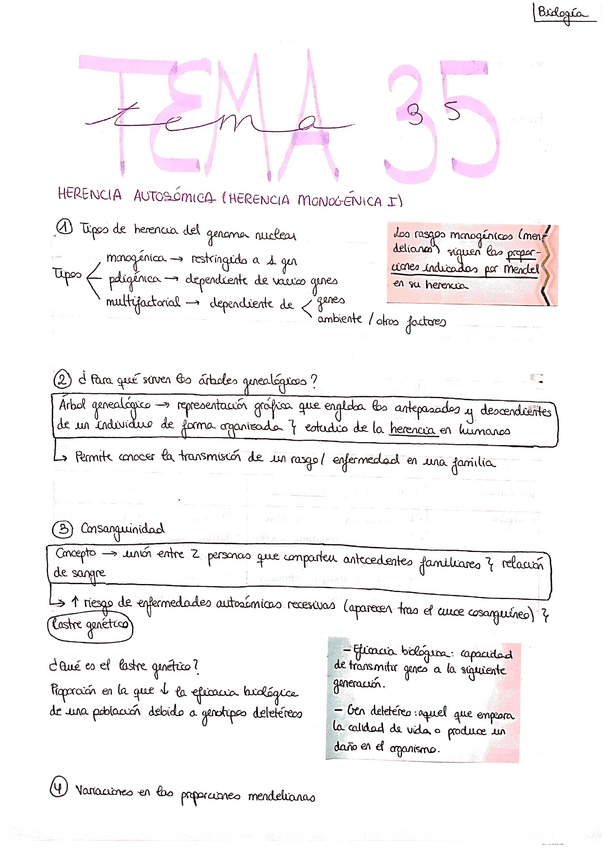 Biología
TEMA 35
tema 35
HERENCIA AUTOSÓMICA (HERENCIA MONOGÉNICA I)
① Tipos de herencia del genoma nuclear
Tipos
monogénica → restringido a 1 gen
poligénica → dependiente de varios genes
multifactorial → dependiente de
genes
ambiente / otros factores
Los rasgos monogénicos (men
delianos) siguen las propor-
ciones indicadas por Mendel
en su herencia
② ¿Para qué sirven los árboles genealógicos?
Árbol genealógico → representación gráfica que engloba los antepasados y descendientes
de un individuo de forma organizada y estudio de la herencia en humanos
↳ Permite conocer la transmisión de un rasgo/ enfermedad en una familia
③ Consanguinidad
Concepto → unión entre 2 personas que comparten antecedentes familiares y relación
de sangre
↳ ↑ riesgo de enfermedades autosómicas recesivas (aparecen tras el cruce cosanguíneo) y
lastre genético
¿Qué es el lastre genético?
Proporción en la que ↓ la eficacia biológica
de una población debido a genotipos deletéreos
- Eficacia biológica: capacidad
de transmitir genes a la siguiente
generación.
- Gen deletéreo: aquel que empeora
la calidad de vida o produce un
daño en el organismo.
④ Variaciones en las proporciones mendelianas